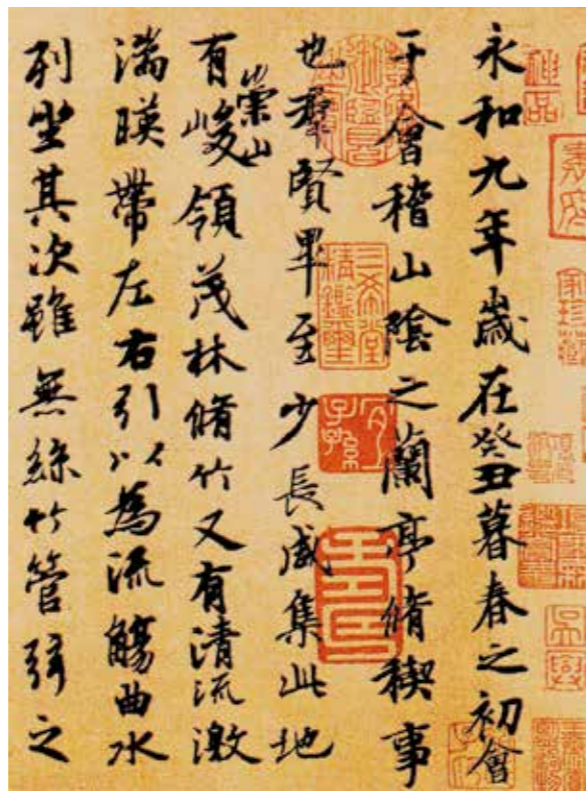 永和九年歲在癸丑暮春之初會
于會稽山陰之蘭亭脩稧事
也羣賢畢至少長咸集此地
有崇山峻領茂林脩竹又有清流激
湍暎帶左右引以為流觴曲水
列坐其次雖無絲竹管弦之
神品
三希堂精鑑璽
宜子孫
吳興